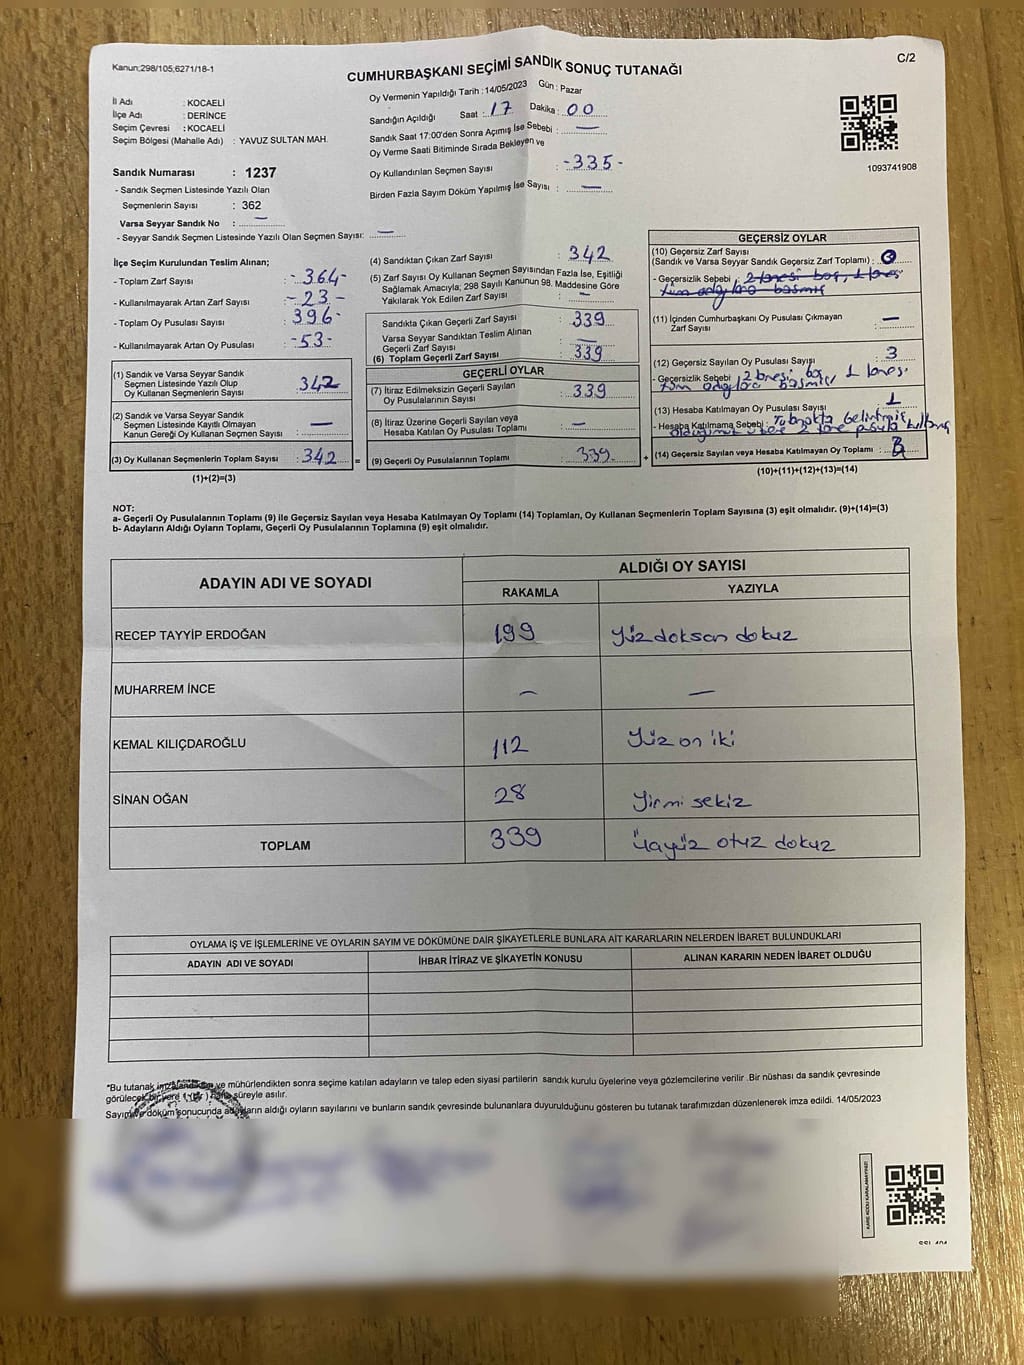 Kanun;298/105;6271/18-1
C/2
CUMHURBAŞKANI SEÇİMİ SANDIK SONUÇ TUTANAĞI
İl Adı : KOCAELİ
İlçe Adı : DERİNCE
Seçim Çevresi : KOCAELİ
Seçim Bölgesi (Mahalle Adı) : YAVUZ SULTAN MAH.
Oy Vermenin Yapıldığı Tarih : 14/05/2023 Gün : Pazar
Sandığın Açıldığı Saat : 17 Dakika : 00
Sandık Saat 17:00'den Sonra Açılmış İse Sebebi : —
Oy Verme Saati Bitiminde Sırada Bekleyen ve
Oy Kullandırılan Seçmen Sayısı : -335-
Birden Fazla Sayım Döküm Yapılmış İse Sayısı : —
1093741908
Sandık Numarası : 1237
- Sandık Seçmen Listesinde Yazılı Olan
Seçmenlerin Sayısı : 362
Varsa Seyyar Sandık No : —
- Seyyar Sandık Seçmen Listesinde Yazılı Olan Seçmen Sayısı: —
İlçe Seçim Kurulundan Teslim Alınan;
- Toplam Zarf Sayısı : -364-
- Kullanılmayarak Artan Zarf Sayısı : -23-
- Toplam Oy Pusulası Sayısı : 396-
- Kullanılmayarak Artan Oy Pusulası : -53-
(1) Sandık ve Varsa Seyyar Sandık
Seçmen Listesinde Yazılı Olup
Oy Kullanan Seçmenlerin Sayısı : 342
(2) Sandık ve Varsa Seyyar Sandık
Seçmen Listesinde Kayıtlı Olmayan
Kanun Gereği Oy Kullanan Seçmen Sayısı : —
(3) Oy Kullanan Seçmenlerin Toplam Sayısı : 342
(1)+(2)=(3)
(4) Sandıktan Çıkan Zarf Sayısı : 342
(5) Zarf Sayısı Oy Kullanan Seçmen Sayısından Fazla İse, Eşitliği
Sağlamak Amacıyla; 298 Sayılı Kanunun 98. Maddesine Göre
Yakılarak Yok Edilen Zarf Sayısı : —
Sandıkta Çıkan Geçerli Zarf Sayısı : 339
Varsa Seyyar Sandıktan Teslim Alınan
Geçerli Zarf Sayısı : —
(6) Toplam Geçerli Zarf Sayısı : 339
GEÇERLİ OYLAR
(7) İtiraz Edilmeksizin Geçerli Sayılan
Oy Pusulasının Sayısı : 339
(8) İtiraz Üzerine Geçerli Sayılan veya
Hesaba Katılan Oy Pusulası Toplamı : —
= (9) Geçerli Oy Pusulalarının Toplamı : 339
GEÇERSİZ OYLAR
(10) Geçersiz Zarf Sayısı
(Sandık ve Varsa Seyyar Sandık Geçersiz Zarf Toplamı) :
- Geçersizlik Sebebi : 2 tanesi boş, 1 tanesi
tüm adaylara basmış
(11) İçinden Cumhurbaşkanı Oy Pusulası Çıkmayan
Zarf Sayısı : —
(12) Geçersiz Sayılan Oy Pusulası Sayısı : 3
- Geçersizlik Sebebi : 2 tanesi boş 1 tanesi
tüm adaylara basmış
(13) Hesaba Katılmayan Oy Pusulası Sayısı : 1
- Hesaba Katılmama Sebebi : Tutanakta belirtmiş
olduğumuz üzere 2 tane pusula
+ (14) Geçersiz Sayılan veya Hesaba Katılmayan Oy Toplamı :
(10)+(11)+(12)+(13)=(14)
NOT:
a- Geçerli Oy Pusulalarının Toplamı (9) İle Geçersiz Sayılan veya Hesaba Katılmayan Oy Toplamı (14) Toplamları, Oy Kullanan Seçmenlerin Toplam Sayısına (3) eşit olmalıdır. (9)+(14)=(3)
b- Adayların Aldığı Oyların Toplamı, Geçerli Oy Pusulalarının Toplamına (9) eşit olmalıdır.
ADAYIN ADI VE SOYADI
ALDIĞI OY SAYISI
RAKAMLA YAZIYLA
RECEP TAYYİP ERDOĞAN 199 Yüzdoksan dokuz
MUHARREM İNCE — —
KEMAL KILIÇDAROĞLU 112 Yüz on iki
SİNAN OĞAN 28 Yirmi sekiz
TOPLAM 339 üçyüz otuz dokuz
OYLAMA İŞ VE İŞLEMLERİNE VE OYLARIN SAYIM VE DÖKÜMÜNE DAİR ŞİKAYETLERLE BUNLARA AİT KARARLARIN NELERDEN İBARET BULUNDUKLARI
ADAYIN ADI VE SOYADI İHBAR İTİRAZ VE ŞİKAYETİN KONUSU ALINAN KARARIN NEDEN İBARET OLDUĞU
*Bu tutanak imzalandıktan ve mühürlendikten sonra seçime katılan adayların ve talep eden siyasi partilerin sandık kurulu üyelerine veya gözlemcilerine verilir .Bir nüshası da sandık çevresinde
görülecek bir yere 1 (bir) hafta süreyle asılır.
Sayım ve döküm sonucunda adayların aldığı oyların sayılarını ve bunların sandık çevresinde bulunanlara duyurulduğunu gösteren bu tutanak tarafımızdan düzenlenerek imza edildi. 14/05/2023
KARE KODU KARALAMAYINIZ!